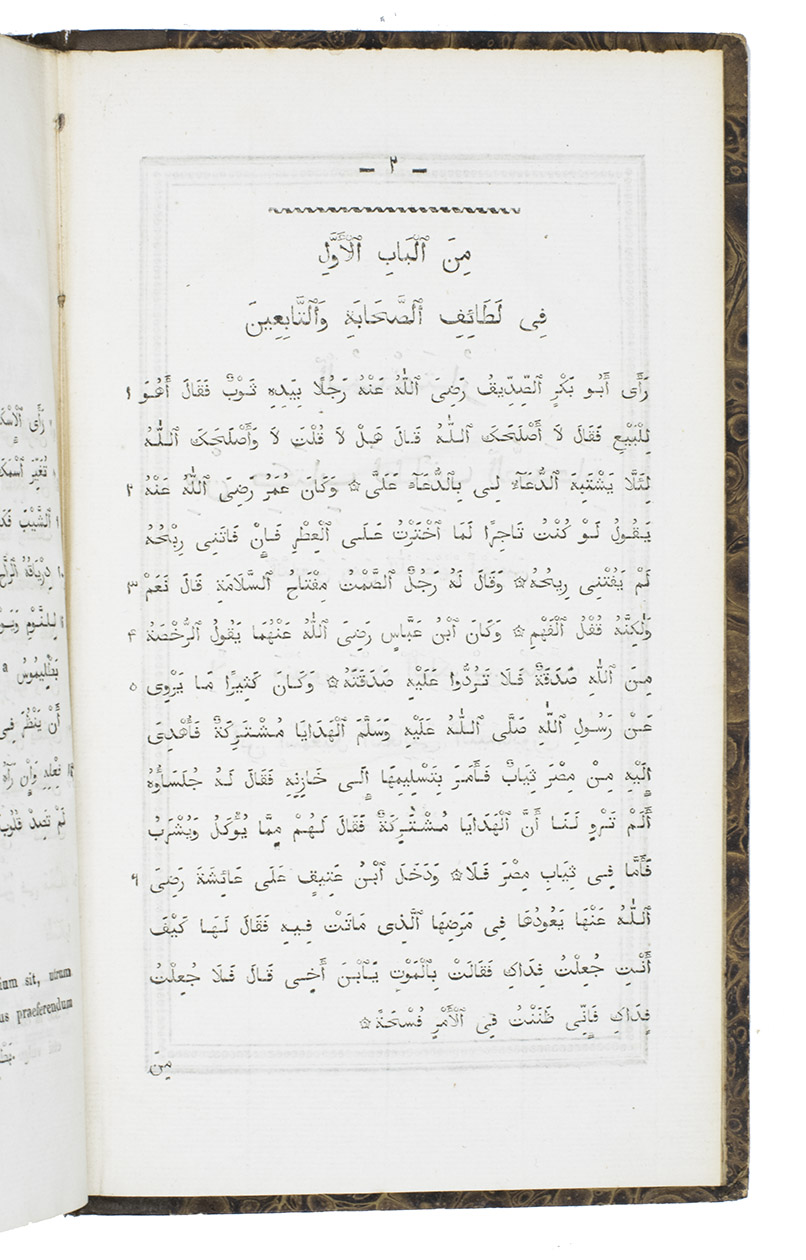 - ٢ -
مِنَ ٱلْبَابِ ٱلْأَوَّلِ
فِى لَطَائِفِ ٱلصَّحَابَةِ وَٱلتَّابِعِينَ
رَأَى أَبُو بَكْرٍ ٱلصِّدِّيقُ رَضِىَ ٱللّٰهُ عَنْهُ رَجُلًا بِيَدِهِ ثَوْبٌ فَقَالَ أَهُوَ ١
لِلْبَيْعِ فَقَالَ لَا أَصْلَحَكَ ٱللّٰهُ قَالَ هَلْ لَا قُلْتَ لَا وَأَصْلَحَكَ ٱللّٰهُ
لِئَلَّا يَشْتَبِهَ ٱلدُّعَآءُ لِى بِٱلدُّعَآءِ عَلَىَّ ۞ وَكَانَ عُمَرُ رَضِىَ ٱللّٰهُ عَنْهُ ٢
يَقُولُ لَوْ كُنْتُ تَاجِرًا لَمَا ٱخْتَرْتُ عَلَى ٱلْعِطْرِ فَإِنْ فَاتَنِى رِبْحُهُ
لَمْ يَفُتْنِى رِيحُهُ ۞ وَقَالَ لَهُ رَجُلٌ ٱلصَّمْتُ مِفْتَاحُ ٱلسَّلَامَةِ قَالَ نَعَمْ ٣
وَلٰكِنَّهُ قُفْلُ ٱلْفَهْمِ ۞ وَكَانَ ٱبْنُ عَبَّاسٍ رَضِىَ ٱللّٰهُ عَنْهُمَا يَقُولُ ٱلرُّخْصَةُ ۴
مِنَ ٱللّٰهِ صَدَقَةٌ فَلَا تَرُدُّوا عَلَيْهِ صَدَقَتَهُ ۞ وَكَانَ كَثِيرًا مَا يَرْوِى ٥
عَنْ رَسُولِ ٱللّٰهِ صَلَّى ٱللّٰهُ عَلَيْهِ وَسَلَّمَ ٱلْهَدَايَا مُشْتَرِكَةٌ فَأُهْدِىَ
إِلَيْهِ مِنْ مِصْرَ ثِيَابٌ فَأَمَرَ بِتَسْلِيمِهَا إِلَى خَازِنِهِ فَقَالَ لَهُ جُلَسَاؤُهُ
أَلَمْ تَرْوِ لَنَا أَنَّ ٱلْهَدَايَا مُشْتَرِكَةٌ فَقَالَ لَهُمْ مِمَّا يُؤْكَلُ وَيُشْرَبُ
فَأَمَّا فِى ثِيَابِ مِصْرَ فَلَا ۞ وَدَخَلَ ٱبْنُ عَتِيقٍ عَلَى عَائِشَةَ رَضِىَ ٦
ٱللّٰهُ عَنْهَا يَعُودُهَا فِى مَرَضِهَا ٱلَّذِى مَاتَتْ فِيهِ فَقَالَ لَهَا كَيْفَ
أَنْتِ جُعِلْتُ فِدَاكِ فَقَالَتْ بِٱلْمَوْتِ يَٱبْنَ أَخِى قَالَ فَلَا جُعِلْتُ
فِدَاكِ فَإِنِّى ظَنَنْتُ فِى ٱلْأَمْرِ فُسْحَةً ۞
مِنَ
رَأَى ٱلْإِسْكَ
تُغَيِّرِ ٱسْمَكَ
ٱلشَّيْبَ
١٠
بَطْلِيمُوسُ
أَنْ يَنْظُرَ فِى
ium sit, utrum
us praeferendum